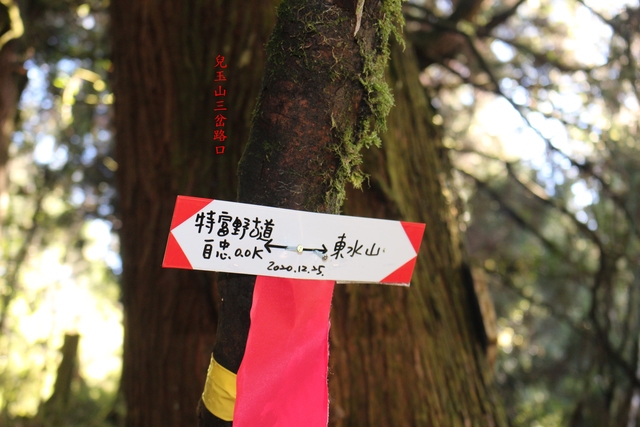 兒玉山三岔路口
特富野古道
自忠0.0K
東水山
2020.12.25.